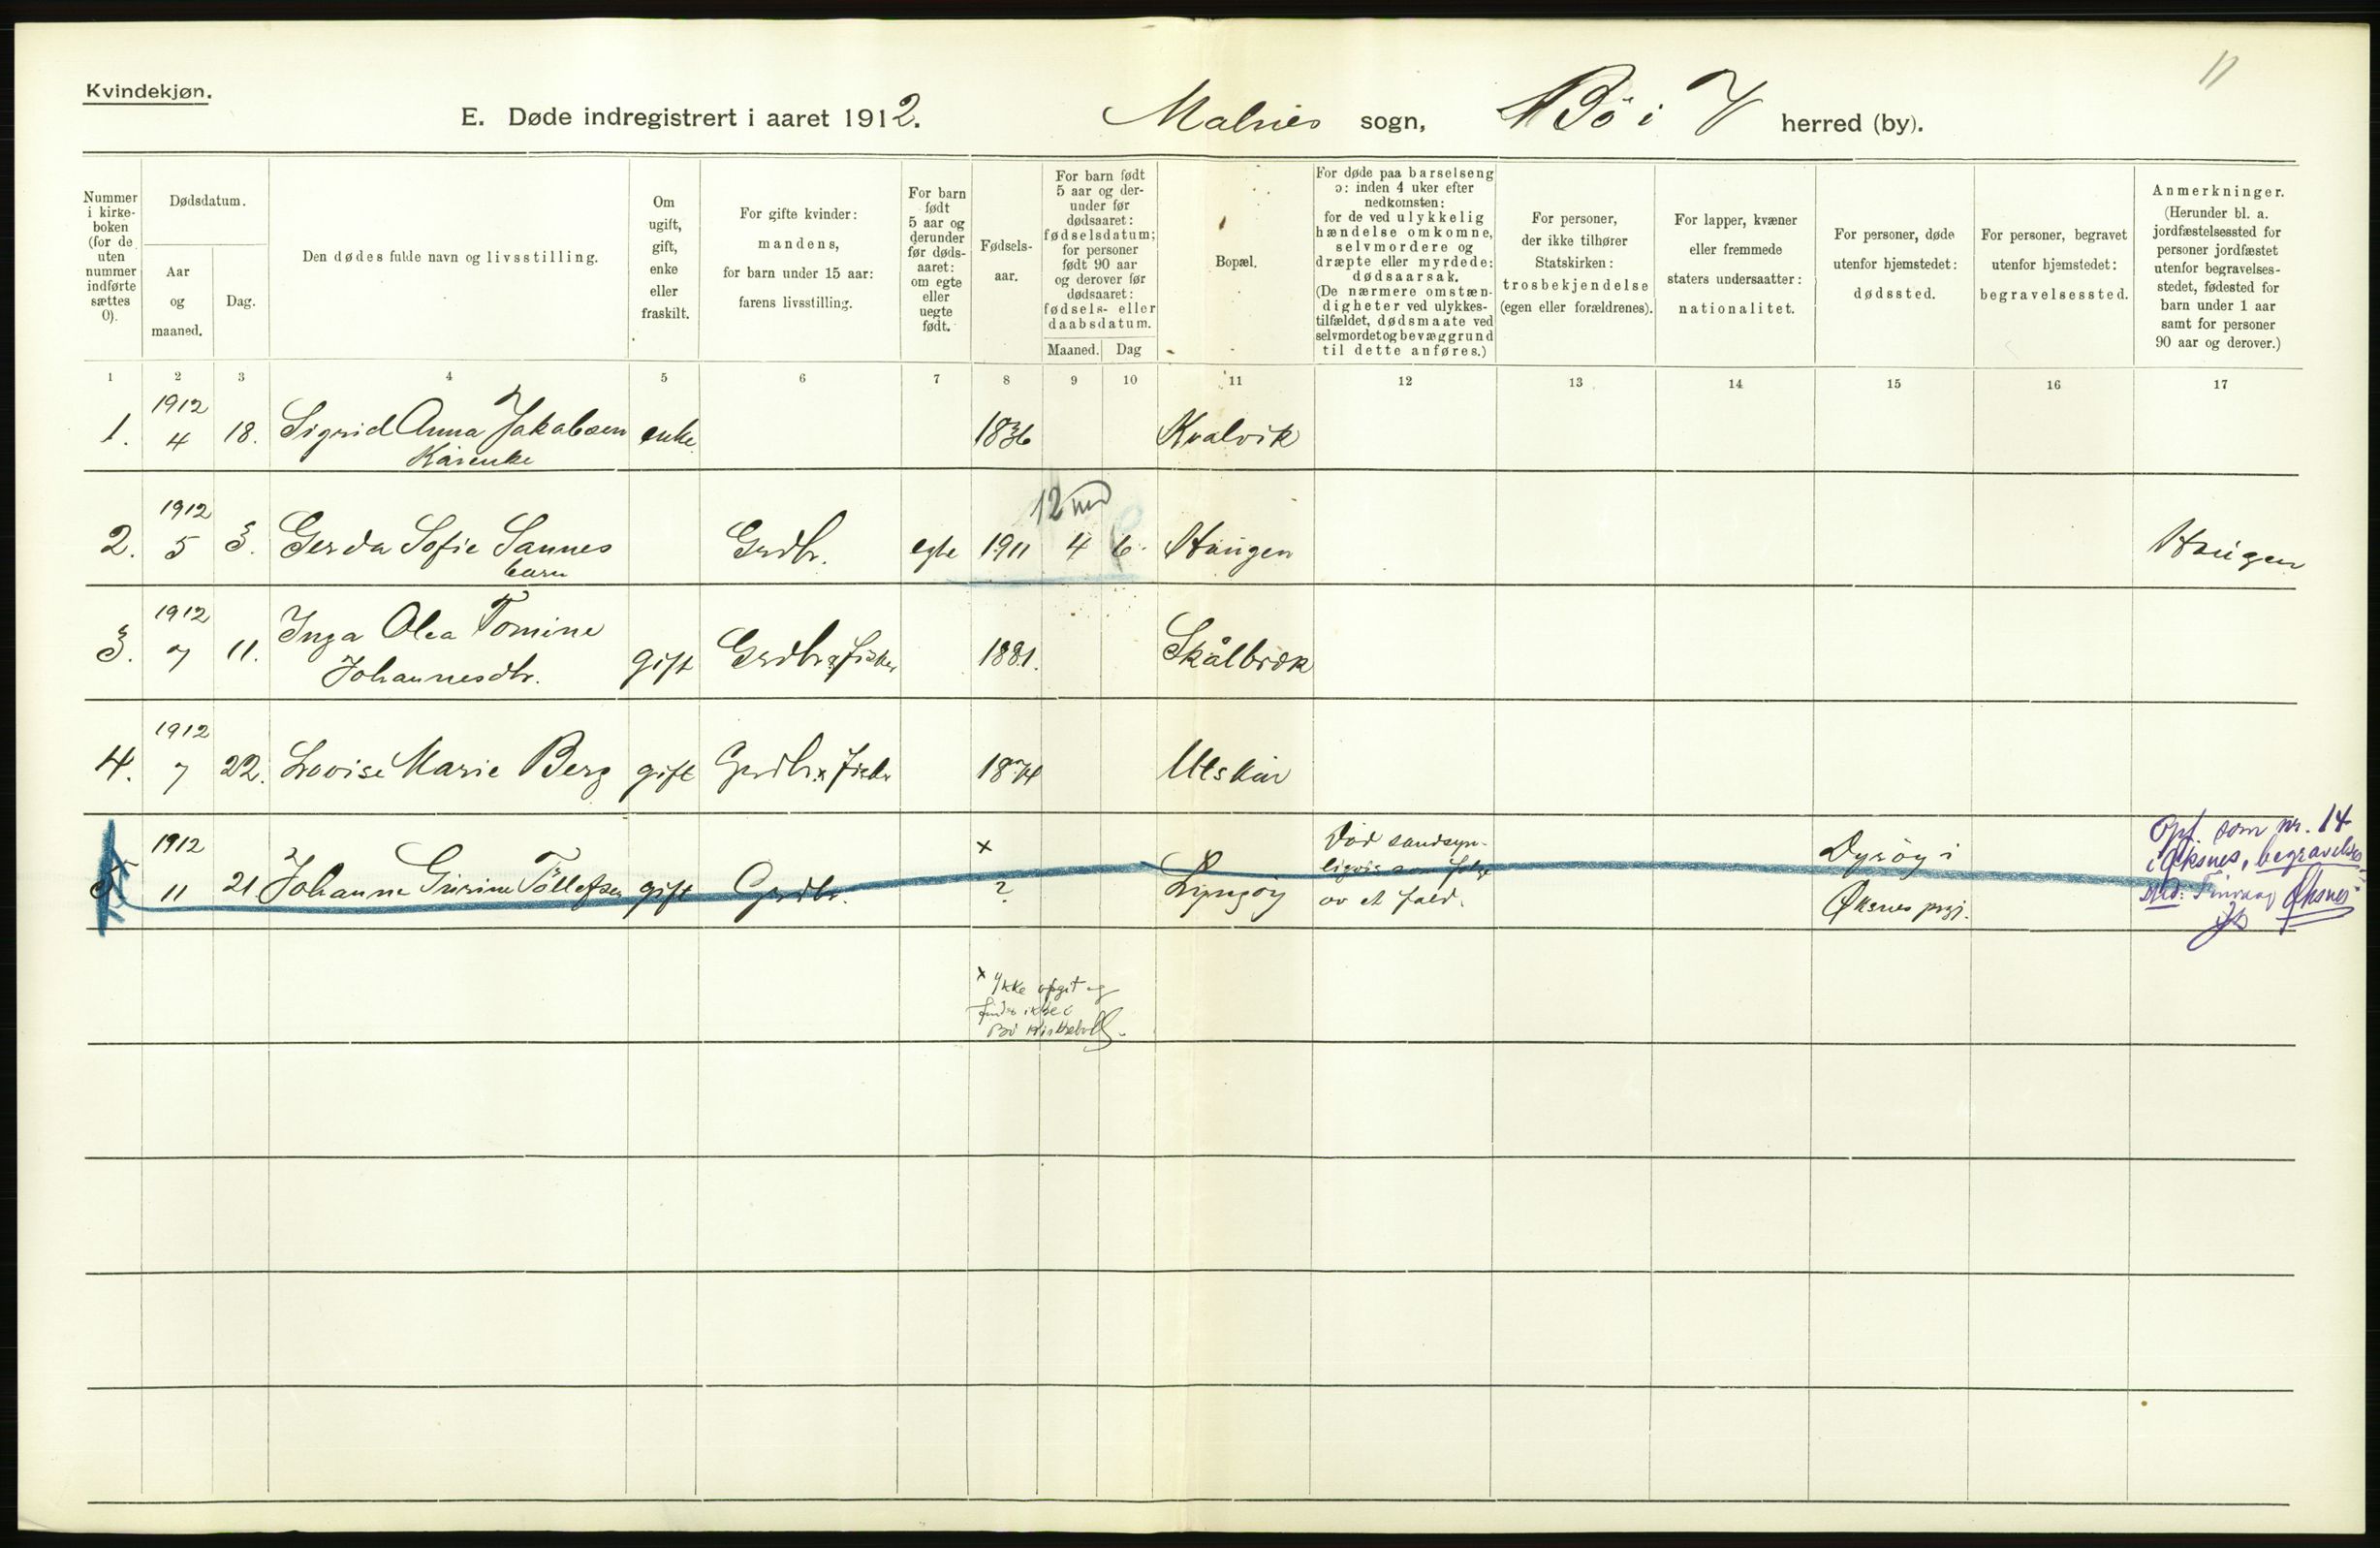 11
Kvindekjøn.
E. Døde indregistrert i aaret 1912. Malnes sogn, Bö i V herred (by).
Nummer i kirke- boken (for de uten nummer indførte sættes 0).
Dødsdatum.
Aar og maaned.
Dag.
Den dødes fulde navn og livsstilling.
Om ugift, gift, enke eller fraskilt.
For gifte kvinder: mandens, for barn under 15 aar: farens livsstilling.
For barn født 5 aar og derunder før døds- aaret: om egte eller uegte født.
Fødsels- aar.
For barn født 5 aar og der- under før dødsaaret: fødselsdatum; for personer født 90 aar og derover før dødsaaret: fødsels- eller daabsdatum.
Maaned. Dag
Bopæl.
For døde paa barselseng ɔ: inden 4 uker efter nedkomsten: for de ved ulykkelig hændelse omkomne, selvmordere og dræpte eller myrdede: dødsaarsak. (De nærmere omstæn- digheter ved ulykkes- tilfældet, dødsmaate ved selvmordet og bevæggrund til dette anføres.)
For personer, der ikke tilhører Statskirken: trosbekjendelse (egen eller forældrenes).
For lapper, kvæner eller fremmede staters undersaatter: nationalitet.
For personer, døde utenfor hjemstedet: dødssted.
For personer, begravet utenfor hjemstedet: begravelsessted.
Anmerkninger. (Herunder bl. a. jordfæstelsessted for personer jordfæstet utenfor begravelses- stedet, fødested for barn under 1 aar samt for personer 90 aar og derover.)
1 2 3 4 5 6 7 8 9 10 11 12 13 14 15 16 17
1912
1. 4 18. Sigrid Anna Jakobsen enke 1836 Kvalvik
Kårenke
1912 12 md
2. 5 3. Gerda Sofie Sannes Grdbr. egte 1911 4 6. Haugen Haugen
barn
1912
3. 7 11. Inga Olea Tomine
Johannesdtr. gift Grdbr & fisker 1881. Skålbrek
1912
4. 7 22. Lovise Marie Berg gift Grdbr & fisker 1874 Utskår
1912 x Död sandsyn- Dyröy i Opf. som nr. 14
5 11 21. Johanne Töllefsen gift Grdbr. ? ligvis som følge Øksnes prgj. i Øksnes, begravelses
av et fald. sted: Øksnes
x Ikke opgit og
findes ikke i
Bö kirkebok.